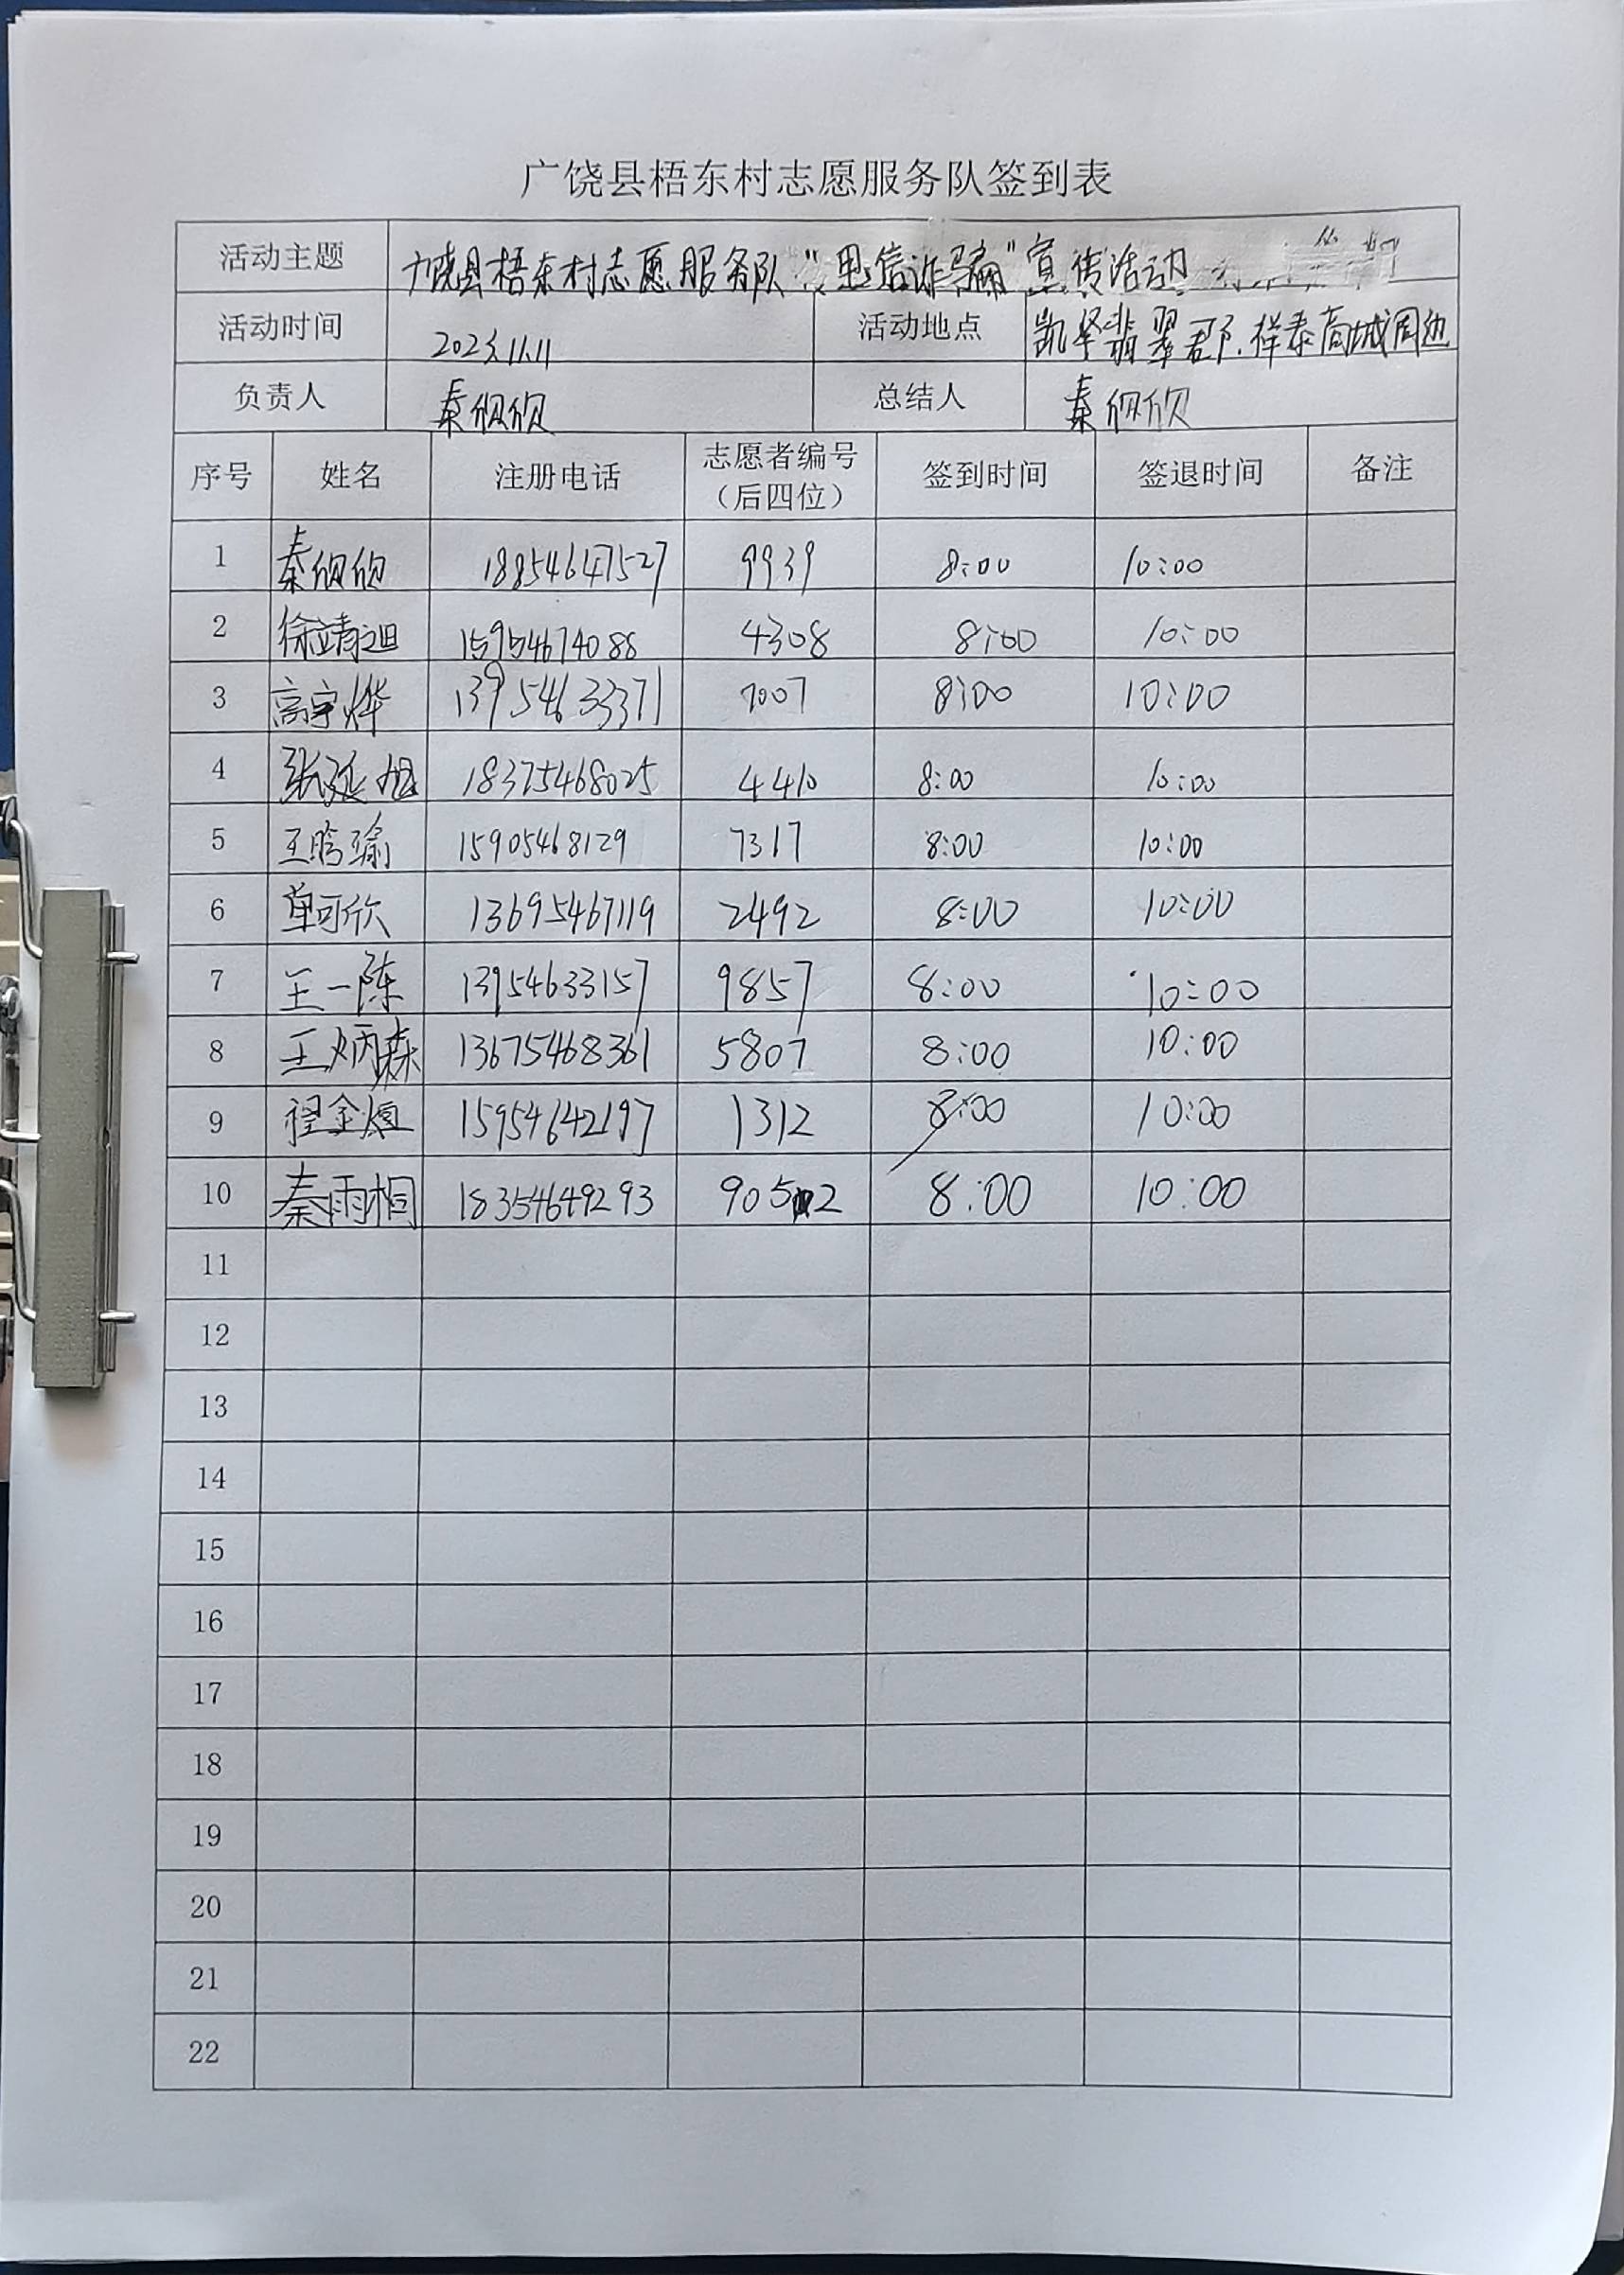 广饶县梧东村志愿服务队签到表
活动主题 广饶县梧东村志愿服务队“电信诈骗”宣传活动
活动时间 2023.11.11 活动地点 凯泽翡翠郡.祥泰商城周边
负责人 秦佩欣 总结人 秦佩欣
序号 姓名 注册电话 志愿者编号（后四位） 签到时间 签退时间 备注
1 秦佩欣 18854647527 9939 8:00 10:00
2 徐靖迦 15954674088 4308 8:00 10:00
3 高宇烨 13954633371 7007 8:00 10:00
4 张延旭 18375468025 4410 8:00 10:00
5 王晗瑜 15905468129 7317 8:00 10:00
6 单可欣 13695467119 2492 8:00 10:00
7 王一陈 13954633157 9857 8:00 10:00
8 王炳森 13675468361 5807 8:00 10:00
9 程金煊 15954642197 1312 8:00 10:00
10 秦雨桐 18354649293 9052 8:00 10:00
11
12
13
14
15
16
17
18
19
20
21
22